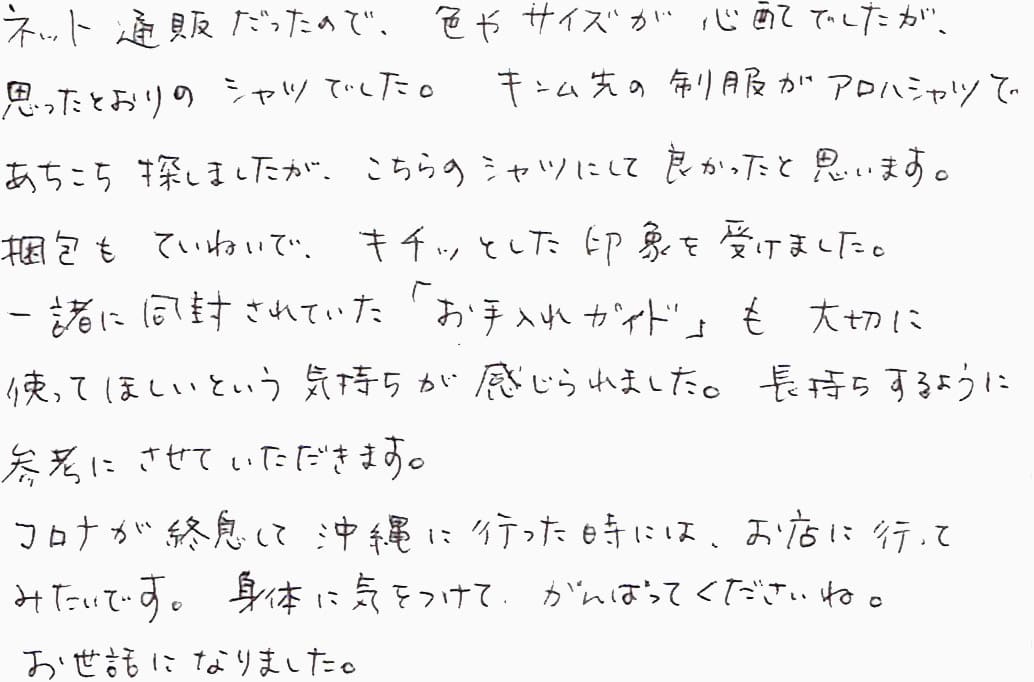 ネット通販だったので、色やサイズが心配でしたが、
思ったとおりのシャツでした。キンム先の制服がアロハシャツで
あちこち探しましたが、こちらのシャツにして良かったと思います。
梱包もていねいで、キチッとした印象を受けました。
一諸に同封されていた「お手入れガイド」も大切に
使ってほしいという気持ちが感じられました。長持ちするように
参考にさせていただきます。
コロナが終息して沖縄に行った時には、お店に行って
みたいです。身体に気をつけて、がんばってくださいね。
お世話になりました。